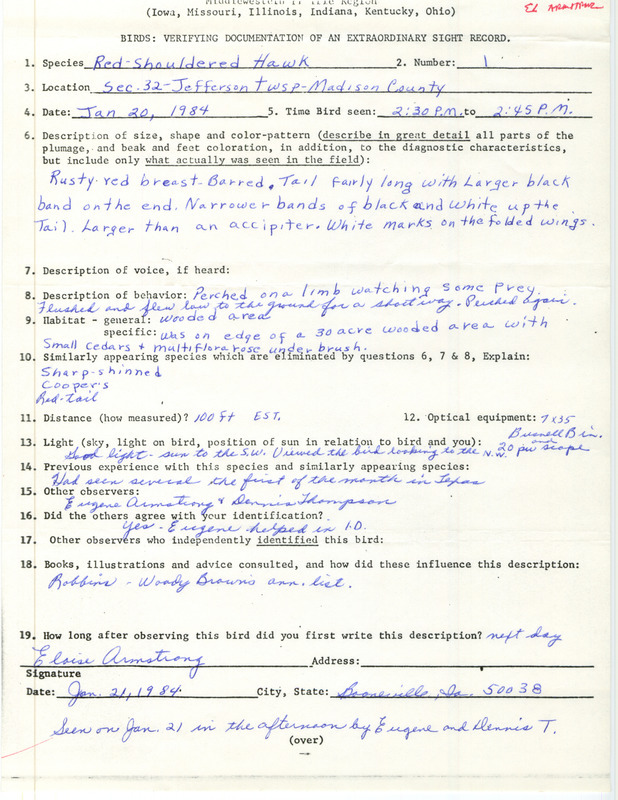 El Armstrong
(Iowa, Missouri, Illinois, Indiana, Kentucky, Ohio)
BIRDS: VERIFYING DOCUMENTATION OF AN EXTRAORDINARY SIGHT RECORD.
1. Species Red-Shouldered Hawk 2. Number: 1
3. Location Sec. 32-Jefferson twsp-Madison County
4. Date: Jan 20, 1984 5. Time Bird seen: 2:30 P.M. to 2:45 P.M.
6. Description of size, shape and color-pattern (describe in great detail all parts of the
plumage, and beak and feet coloration, in addition, to the diagnostic characteristics,
but include only what actually was seen in the field):
Rusty-red breast-Barred. Tail fairly long with Larger black
band on the end. Narrower bands of black and white up the
Tail. Larger than an accipiter. White marks on the folded wings.
7. Description of voice, if heard:
8. Description of behavior: Perched on a limb watching some prey.
Flushed and flew low to the ground for a short way. Perched again.
9. Habitat - general: wooded area
specific: was on edge of a 30 acre wooded area with
small cedars + multiflora rose under brush.
10. Similarly appearing species which are eliminated by questions 6, 7 & 8, Explain:
Sharp-shinned
Cooper's
Red-tail
11. Distance (how measured)? 100 ft EST. 12. Optical equipment: 7x35
Busnell Bin.
13. Light (sky, light on bird, position of sun in relation to bird and you): and 20 pw scope
Good light - sun to the S.W. Viewed the bird looking to the N.W.
14. Previous experience with this species and similarly appearing species:
Had seen several the first of the month in Texas
15. Other observers:
Eugene Armstrong & Dennis Thompson
16. Did the others agree with your identification?
Yes - Eugene helped in I.D.
17. Other observers who independently identified this bird:
18. Books, illustrations and advice consulted, and how did these influence this description:
Robbins - Woody Brown's ann. list.
19. How long after observing this bird did you first write this description? next day
Eloise Armstrong Address:
Signature
Date: Jan. 21, 1984 City, State: Booneville, Ia. 50038
Seen on Jan. 21 in the afternoon by Eugene and Dennis T.
(over)